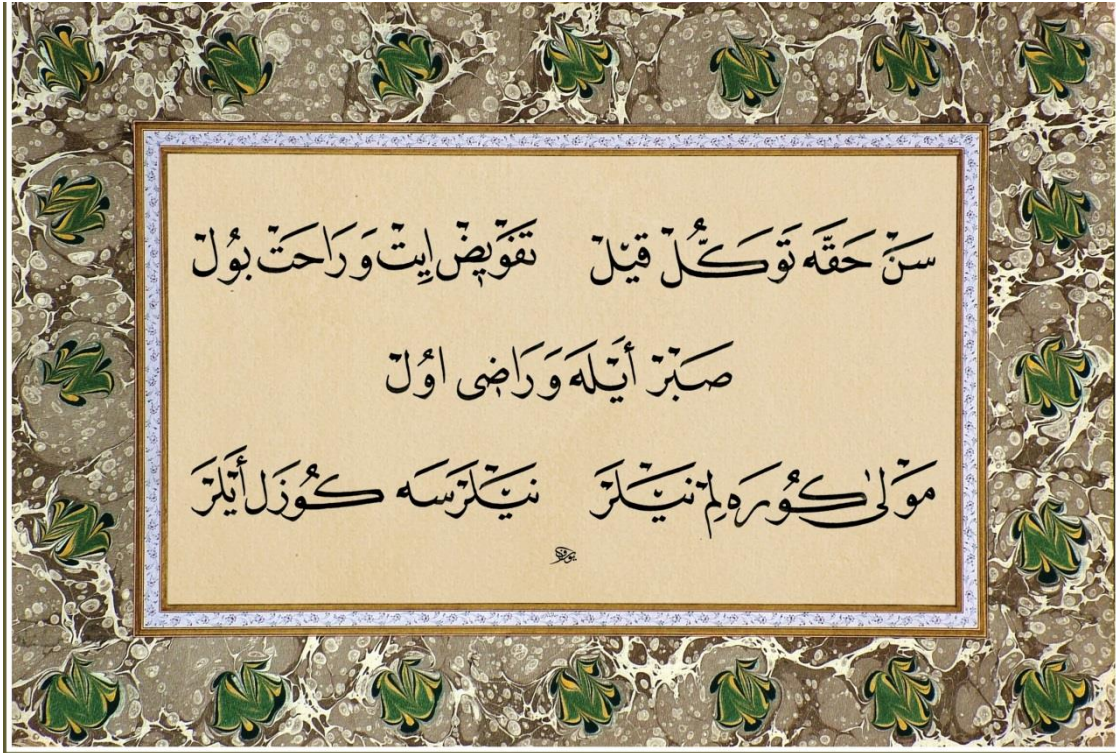 سَنْ حَقَّه تَوَكُّلْ قِيلْ تَفْوِيضْ اِيتْ وَ رَاحَتْ بُولْ
صَبْرْ أَيْلَه وَ رَاضِى اُولْ
مَوْلٰى كُورَه لِمْ نَيْلَرْ نَيْلَرْسَه كُوزَل أَيْلَرْ